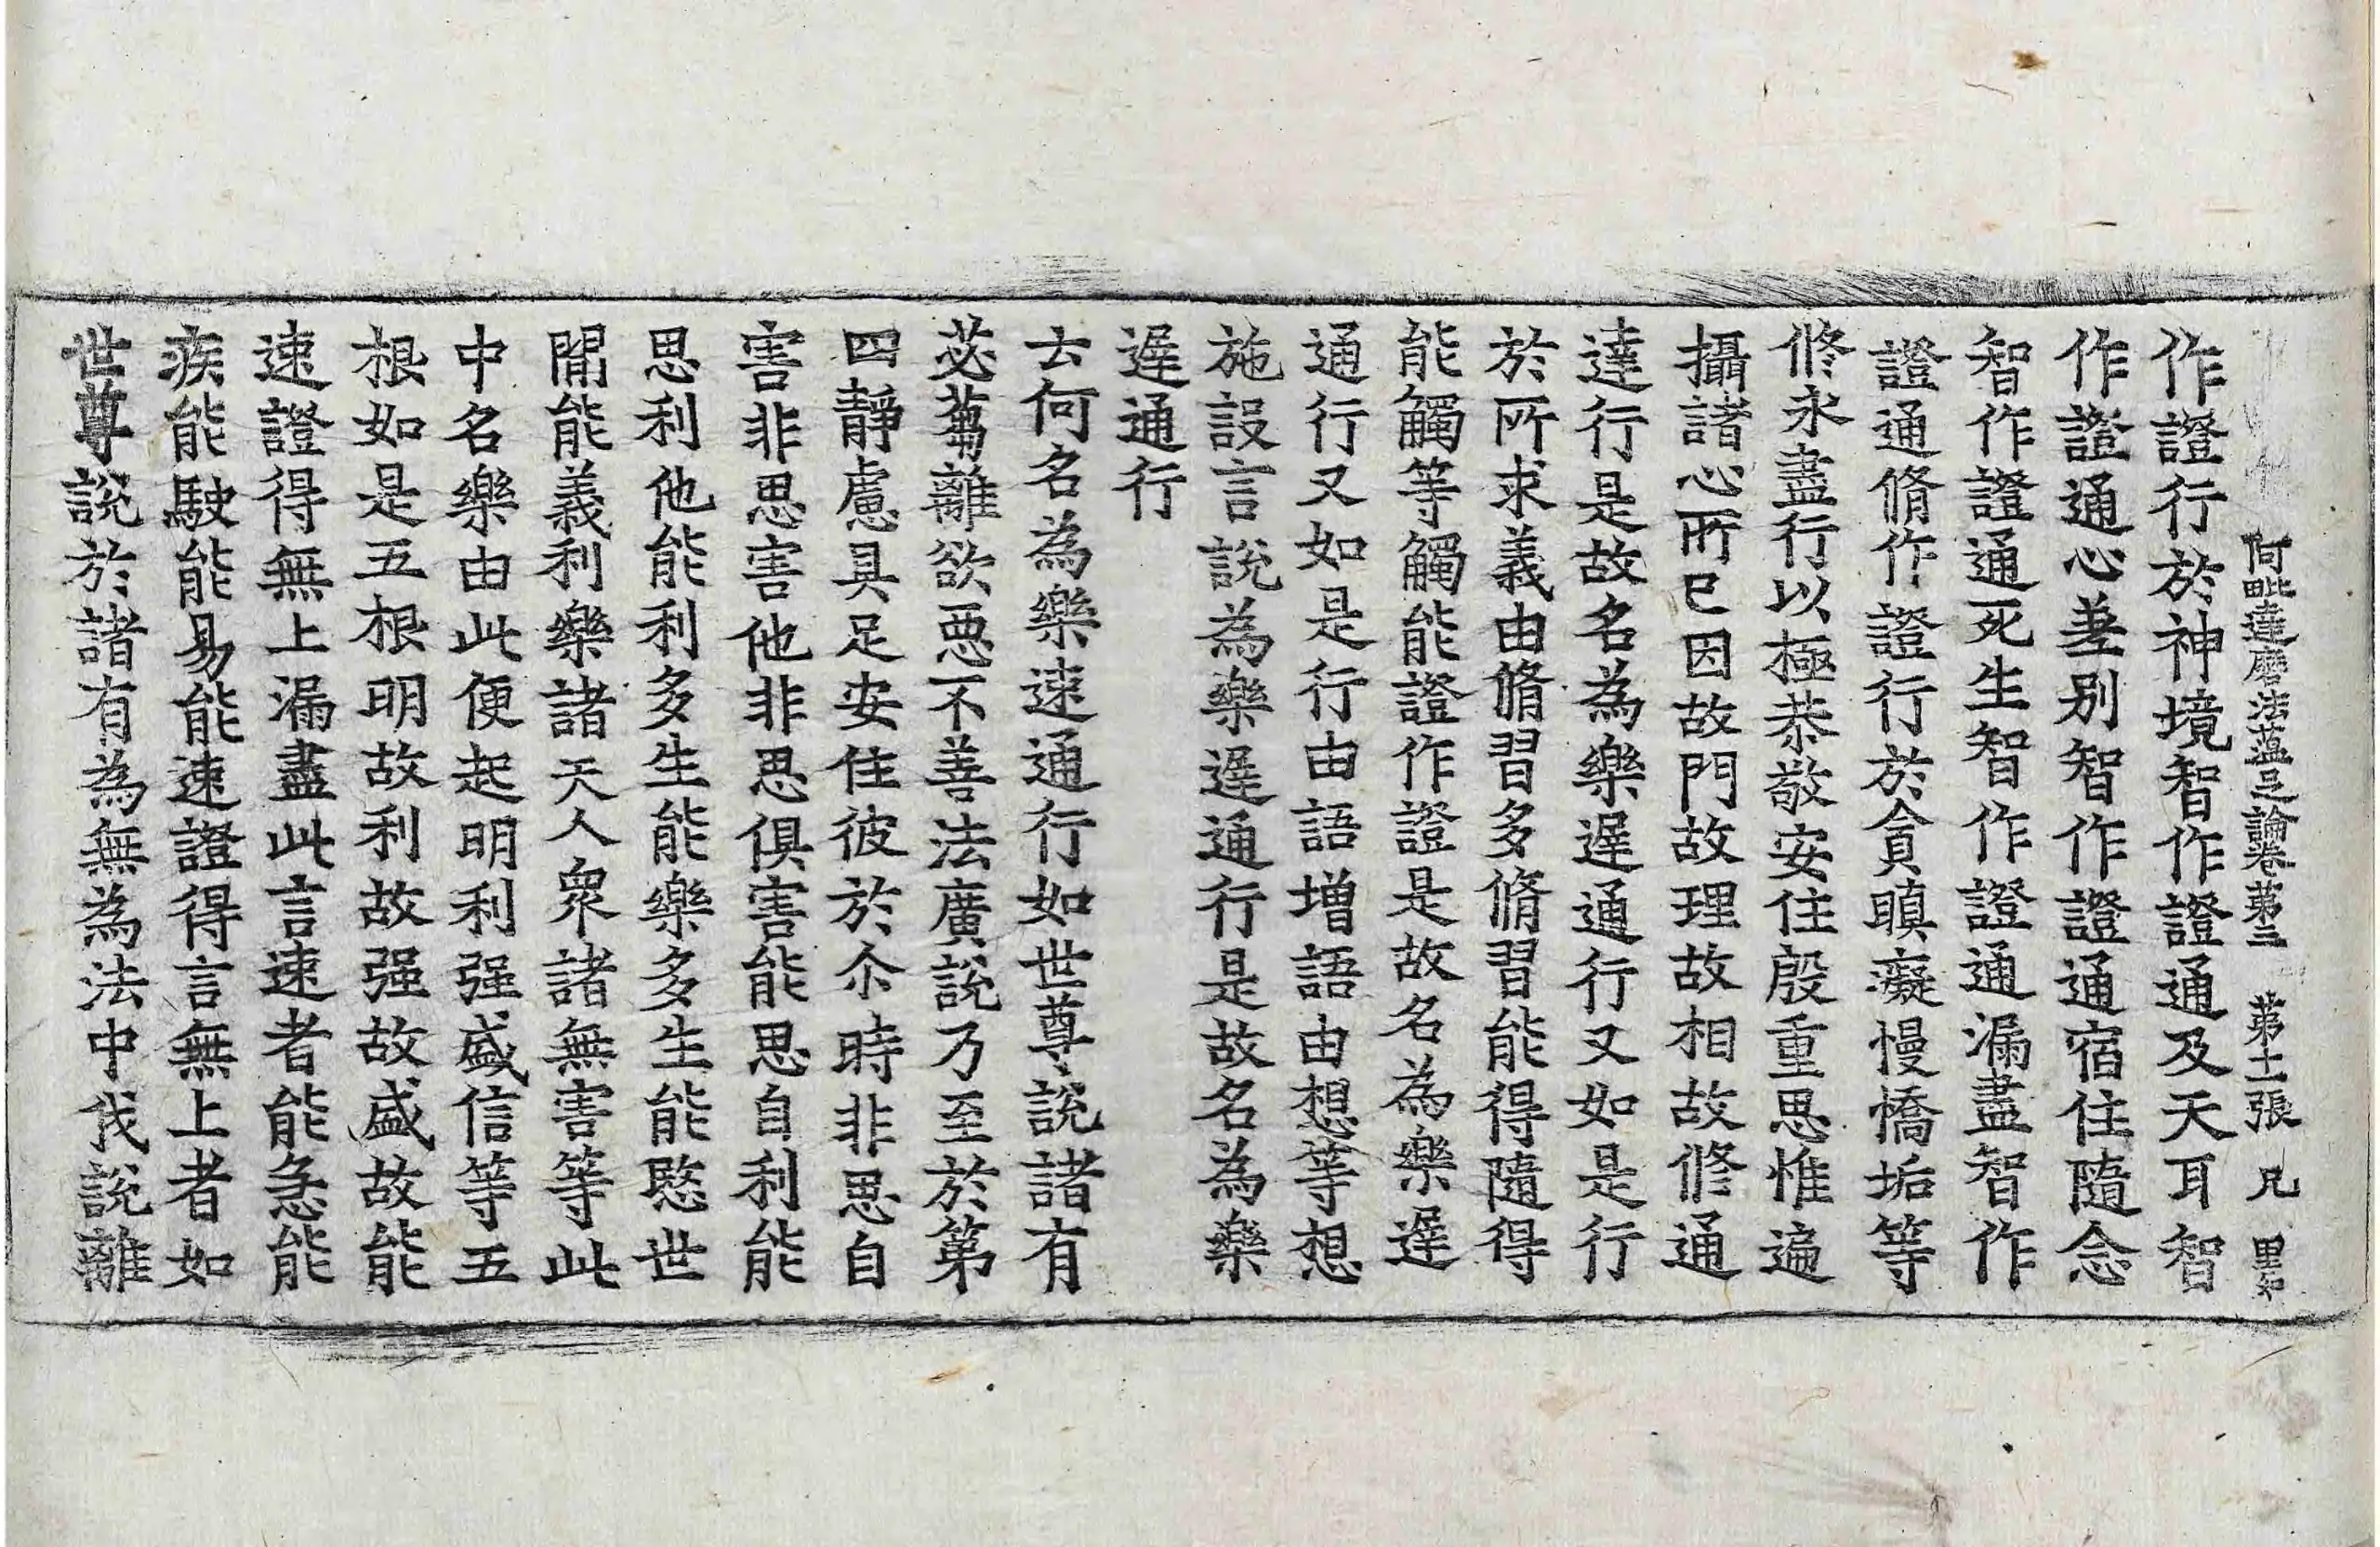 阿毗達磨法蘊足論卷第三 第十一張 兄
作證行於神境智作證通及天耳智
作證通心差別智作證通宿住隨念
智作證通死生智作證通漏盡智作
證通脩作證行於貪瞋癡慢憍垢等
修永盡行以極恭敬安住殷重思惟遍
攝諸心所已因故門故理故相故修通
達行是故名為樂遲通行又如是行
於所求義由脩習多脩習能得隨得
能觸等觸能證作證是故名為樂遲
通行又如是行由語增語由想等想
施設言說為樂遲通行是故名為樂
遲通行
云何名為樂速通行如世尊說諸有
苾蒭離欲惡不善法廣說乃至於第
四靜慮具足安住彼於尒時非思自
害非思害他非思俱害能思自利能
思利他能利多生能樂多生能愍世
閒能義利樂諸天人眾諸無害等此
中名樂由此便起明利强盛信等五
根如是五根明故利故强故盛故能
速證得無上漏盡此言速者能急能
疾能駛能易能速證得言無上者如
世尊說於諸有為無為法中我說離